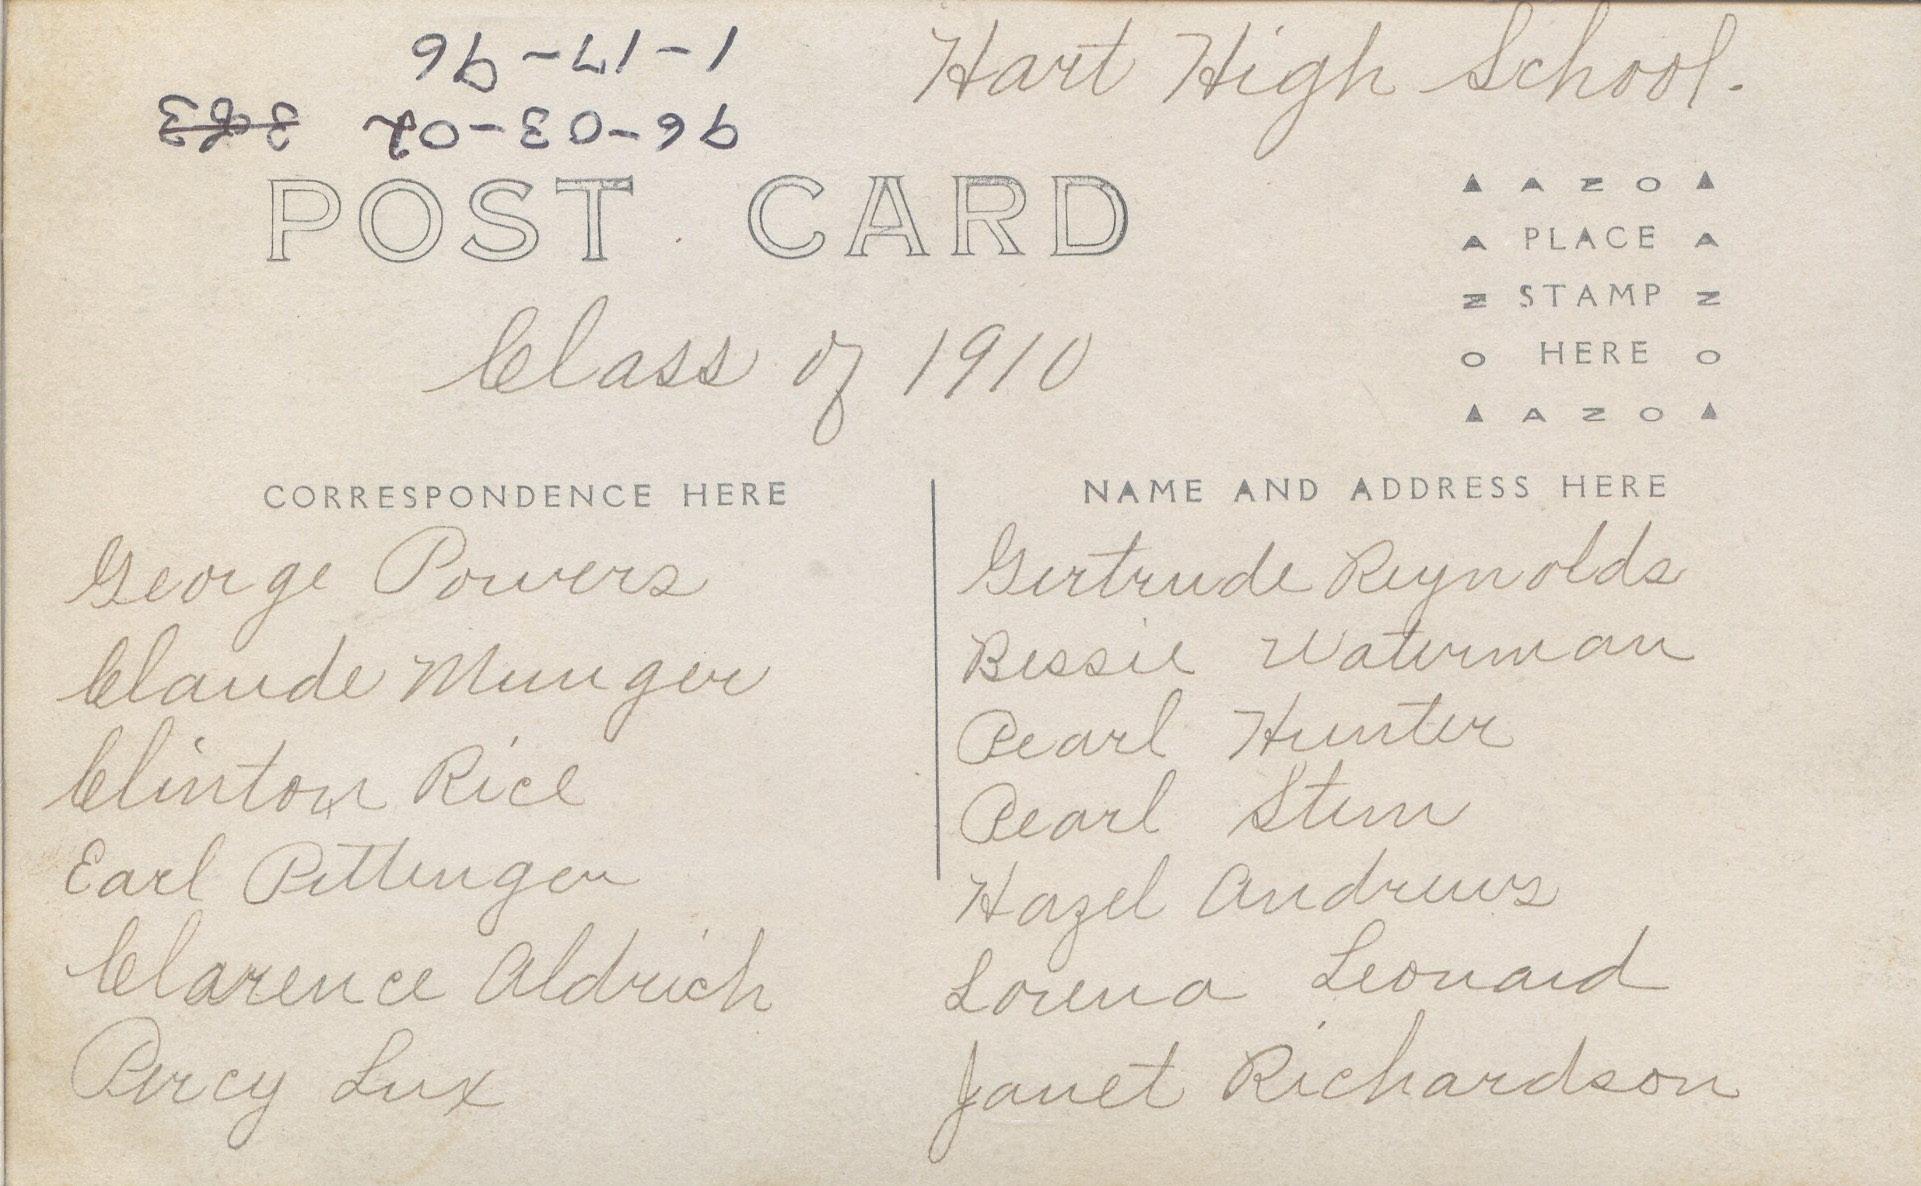 Hart High School.
1-17-96
96-03-02 383
POST CARD
AZO
PLACE
STAMP
HERE
AZO
Class of 1910
CORRESPONDENCE HERE
NAME AND ADDRESS HERE
George Powers
Claude Munger
Clinton Rice
Earl Pittenger
Clarence Aldrich
Percy Lux
Gertrude Reynolds
Bessie Waterman
Pearl Hunter
Pearl Stem
Hazel Andrews
Lorena Leonard
Janet Richardson